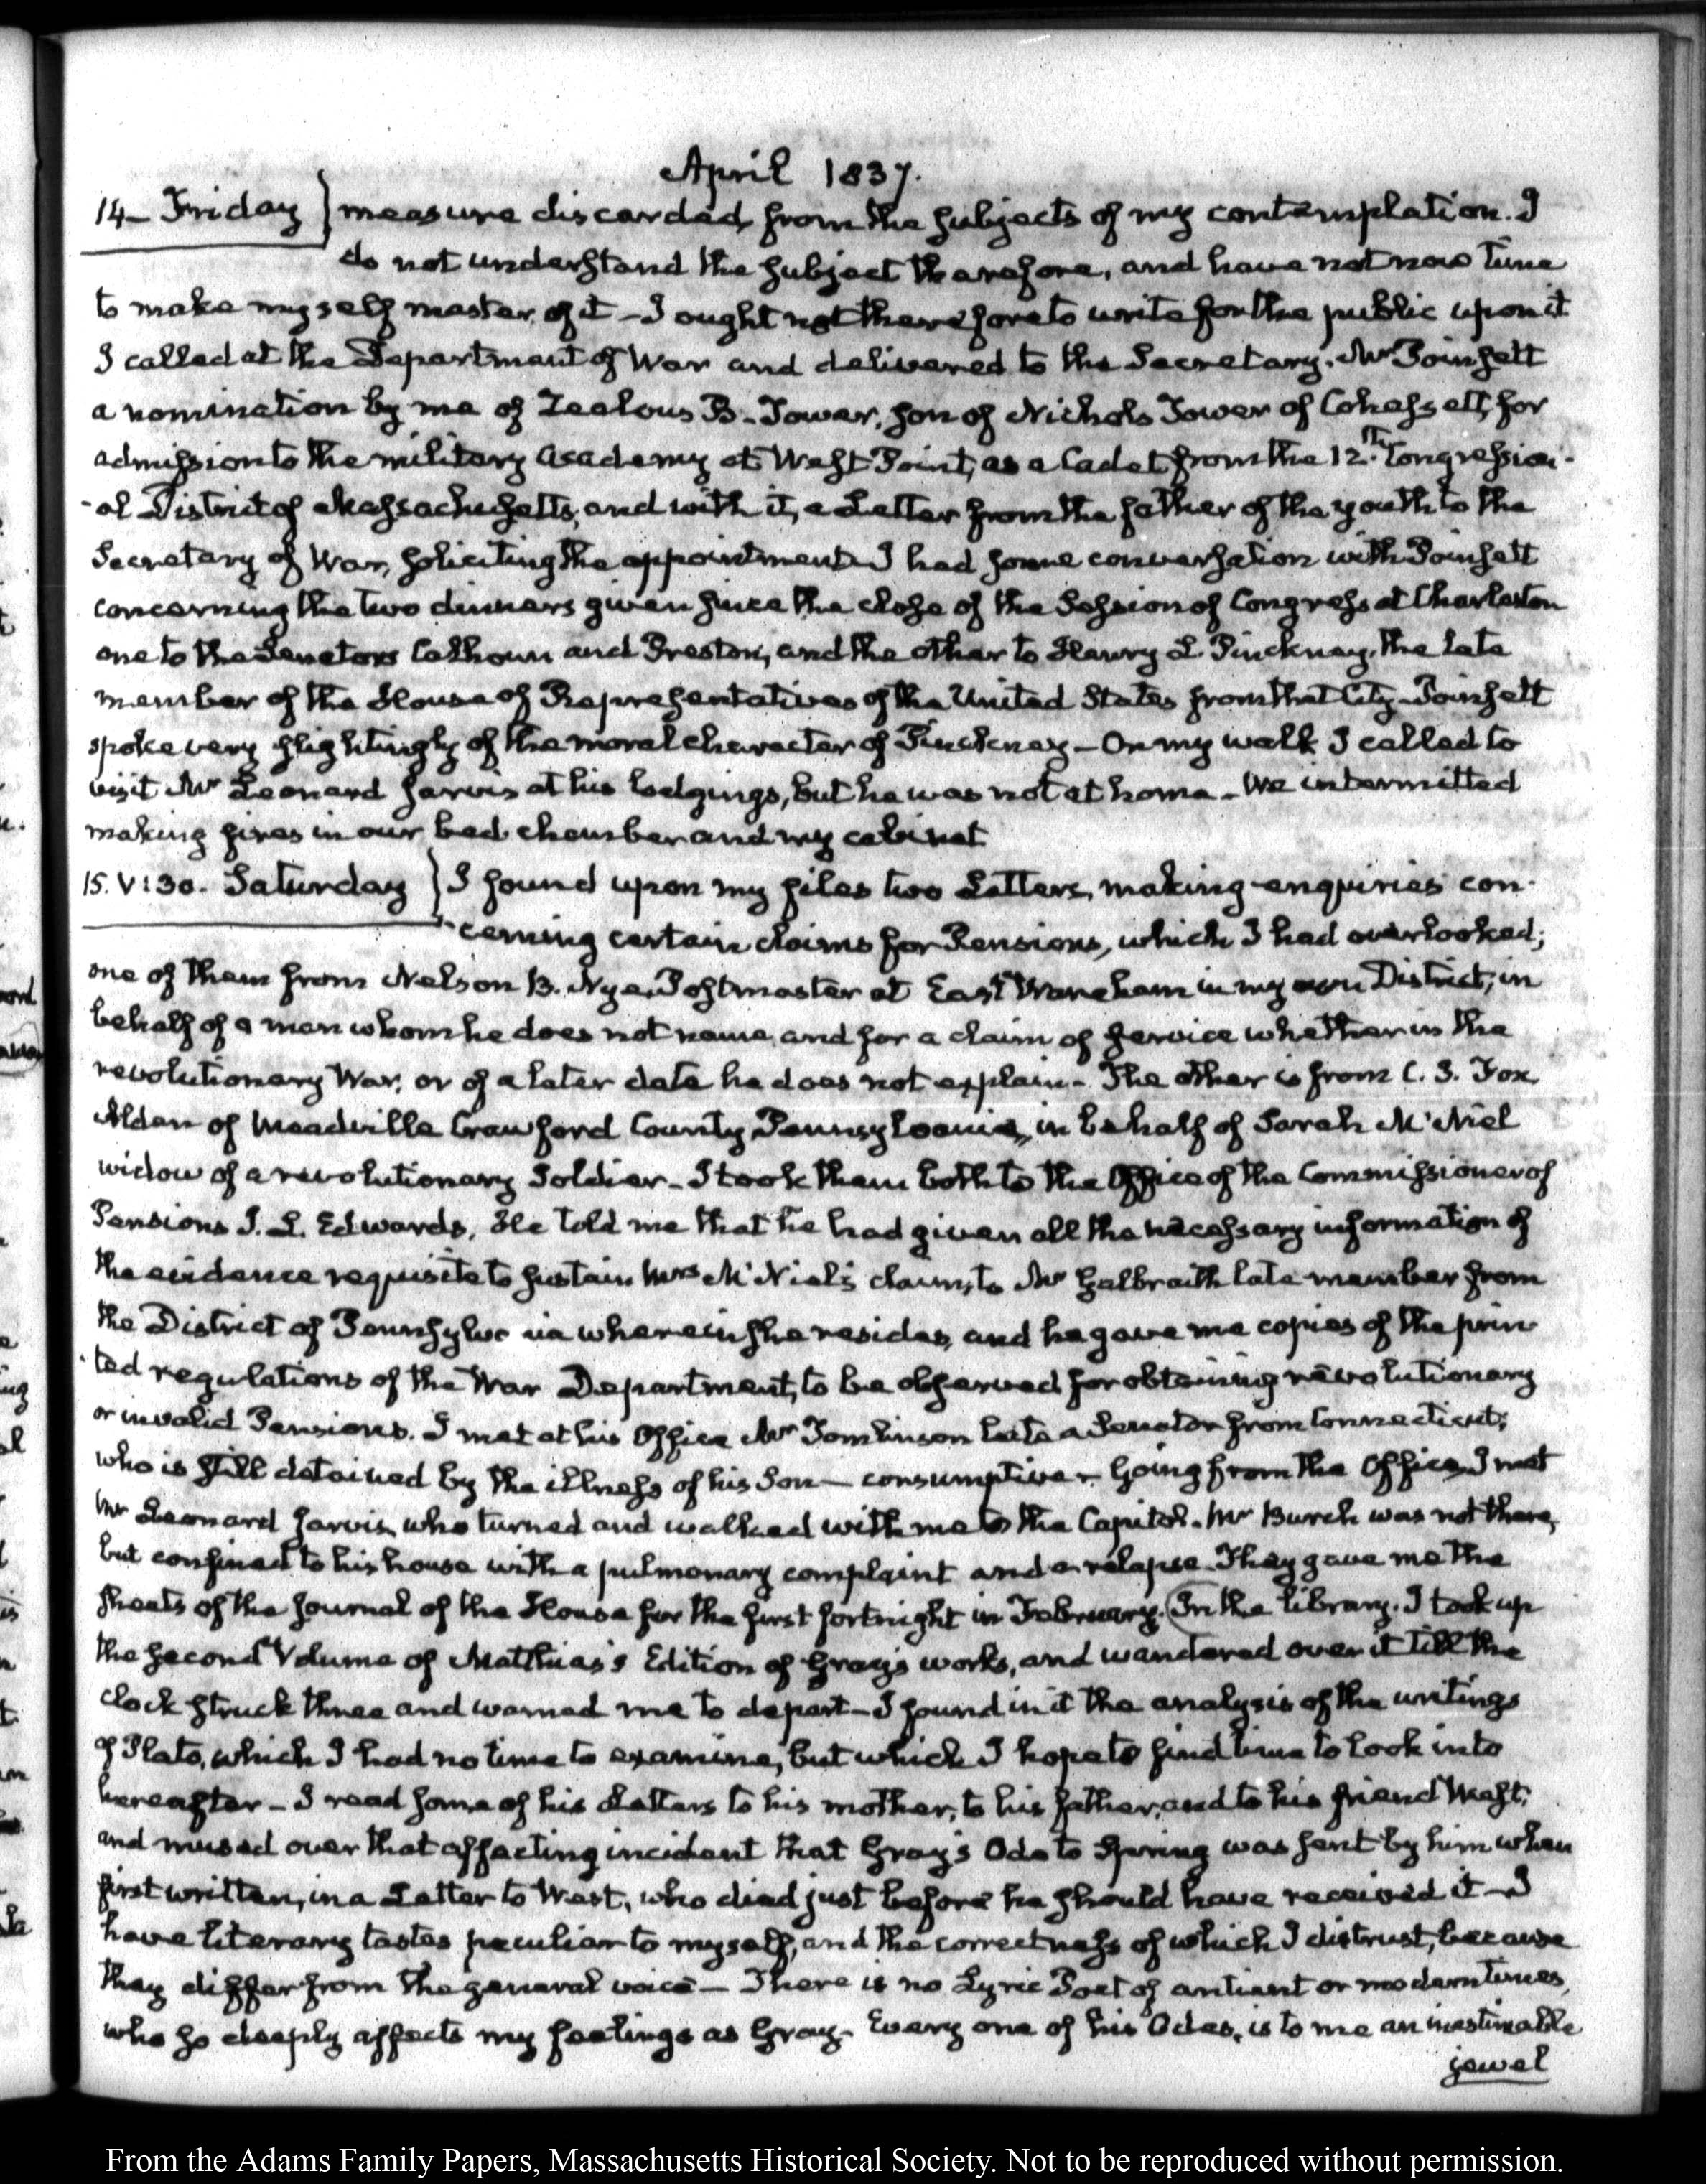 April 1837.
14– Friday } measure discarded from the subjects of my contemplation. I
do not understand the subject therefore, and have not now time
to make myself master of it – I ought not therefore to write for the public upon it
I called at the Department of War and delivered to the Secretary. Mr Poinsett
a nomination by me of Zealous B. Tower, son of Nichols Tower of Cohassett, for
admission to the military academy at West Point, as a Cadet from the 12th Congression-
-al District of Massachusetts, and with it, a Letter from the father of the youth to the
Secretary of War, soliciting the appointment. I had some conversation with Poinsett
concerning the two dinners given since the close of the Session of Congress at Charleston
one to the Senators Calhoun and Preston, and the other to Henry L Pinckney, the late
member of the House of Representatives of the United States from that City – Poinsett
spoke very slightingly of the moral character of Pinckney – On my walk I called to
visit Mr Leonard Jarvis at his lodgings, but he was not at home – We intermitted
making fires in our bed chamber and my cabinet
15. V:30. Saturday } I found upon my files two Letters, making enquiries con-
-cerning certain claims for Pensions, which I had overlooked;
one of them from Nelson B. Nye, Postmaster at East Wareham in my own District, in
behalf of a man whom he does not name, and for a claim of service whether in the
revolutionary War, or of a later date he does not explain – The other is from C. S. Fox
Alden of Meadville Crawford County Pennsylvania, in behalf of Sarah McNiel
widow of a revolutionary Soldier – I took them both to the Office of the Commissioner of
Pensions J. L. Edwards. He told me that he had given all the necessary information of
the evidence requisite to sustain Mrs McNiel's claim, to Mr Galbraith late member from
the District of Pennsylvania wherein she resides, and he gave me copies of the prin
-ted regulations of the War Department, to be observed for obtaining revolutionary
or invalid Pensions. I met at his Office Mr Tomlinson late a Senator from Connecticut;
who is still detained by the illness of his Son – consumptive – Going from the Office, I met
Mr Leonard Jarvis, who turned and walked with me to the Capitol. Mr Burch was not there,
but confined to his house with a pulmonary complaint and a relapse – They gave me the
sheets of the Journal of the House for the first fortnight in February. In the library. I took up
the second Volume of Matthias's Edition of Gray's works, and wandered over it till the
clock struck three and warned me to depart – I found in it the analysis of the writings
of Plato, which I had no time to examine, but which I hope to find time to look into
hereafter – I read some of his Letters to his mother, to his father, and to his friend West;
and mused over that affecting incident that Gray's Ode to Spring was sent by him when
first written, in a Letter to West, who died just before he should have received it – I
have literary tastes peculiar to myself, and the correctness of which I distrust, because
they differ from the general voice – There is no Lyric Poet of antient or modern times,
who so deeply affects my feelings as Gray – Every one of his Odes, is to me an inestimable
jewel
From the Adams Family Papers, Massachusetts Historical Society. Not to be reproduced without permission.